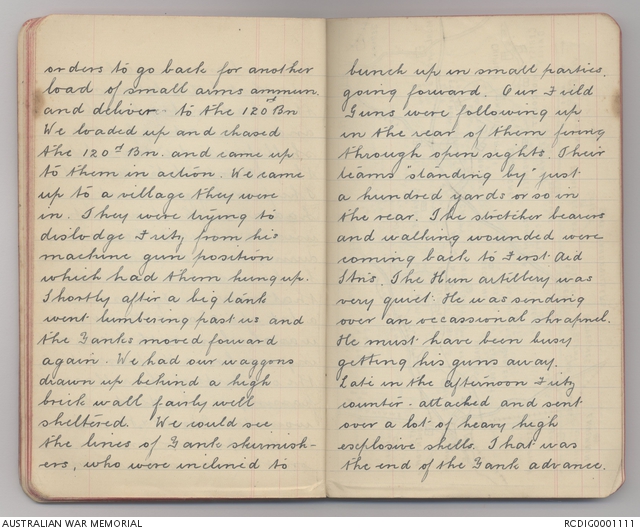 orders to go back for another
load of small arms ammun.
and deliver to the 120d Bn
We loaded up and chased
the 120d Bn. and came up
to them in action. We came
up to a village they were
in. They were trying to
dislodge Fritz from his
machine gun position
which had them hung up.
Shortly after a big tank
went lumbering past us and
the Yanks moved forward
again. We had our waggons
drawn up behind a high
brick wall fairly well
sheltered. We would see
the lines of Yank skirmish-
ers, who were inclined to
bunch up in small parties.
going forward. Our Field
Guns were following up
in the rear of them firing
through open sights. Their
teams "standing by" just
a hundred yards or so in
the rear. The stretcher bearers
and walking wounded were
coming back to First Aid
Stns. The Hun artillery was
very quiet. He was sending
over an occassional shrapnel.
He must have been busy
getting his guns away.
Late in the afternoon Fritz
counter-attacked and sent
over a lot of heavy high
explosive shells. That was
the end of the Yank advance.
AUSTRALIAN WAR MEMORIAL
RCDIG0001111